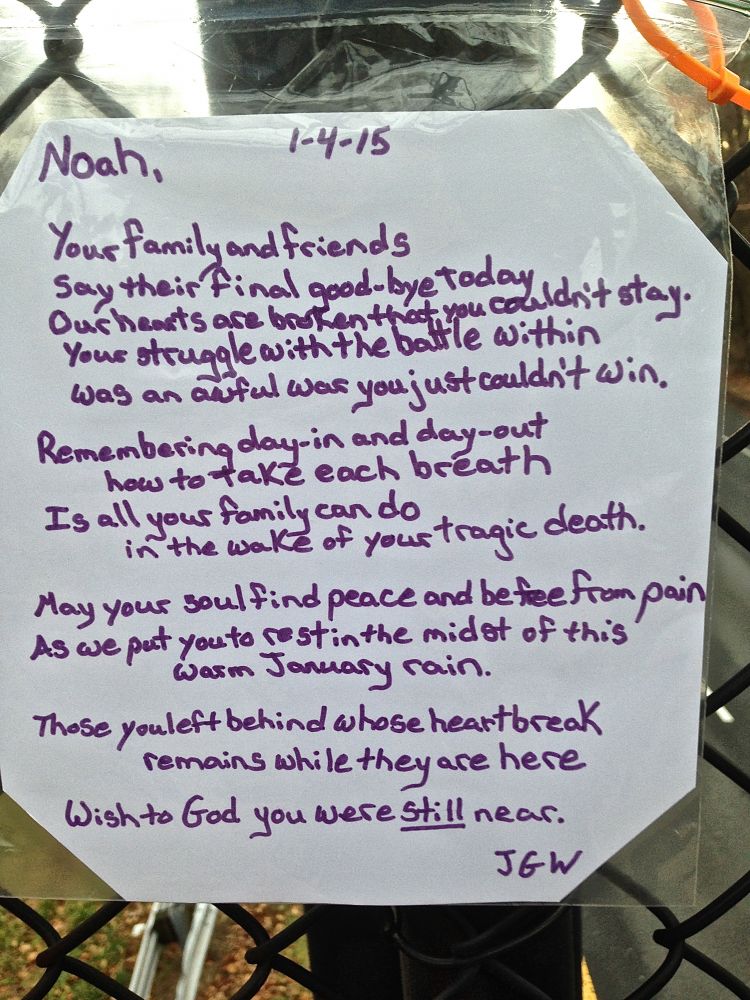 1-4-15
Noah,
Your family and friends
Say their final good-bye today
Our hearts are broken that you couldn't stay.
Your struggle with the battle within
was an awful war you just couldn't win.
Remembering day-in and day-out
how to take each breath
Is all your family can do
in the wake of your tragic death.
May your soul find peace and be free from pain
As we put you to rest in the midst of this
warm January rain.
Those you left behind whose heartbreak
remains while they are here
Wish to God you were still near.
JGW